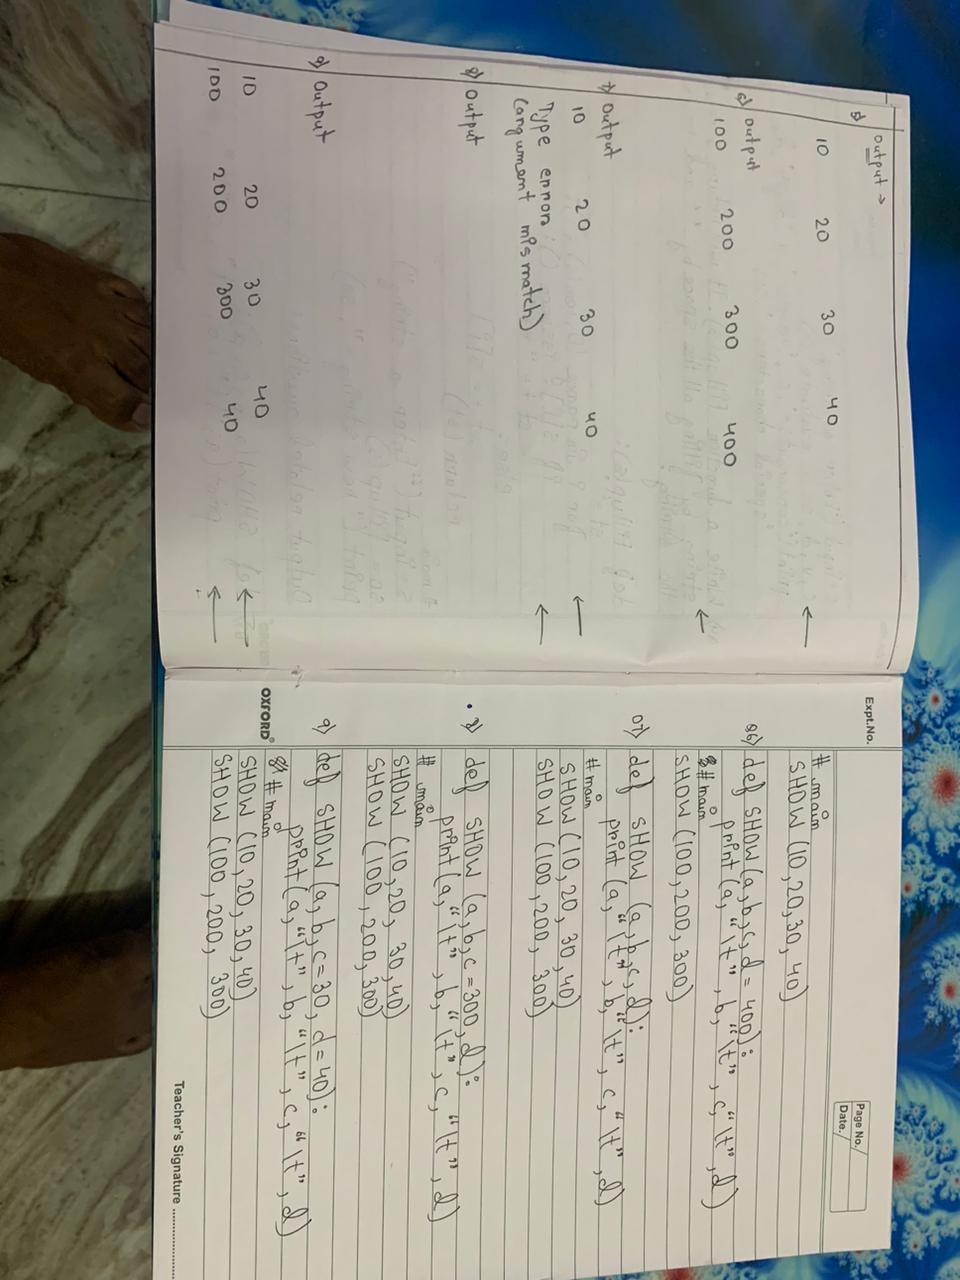 Output →
5)
10 20 30 40
←
6) Output
100 200 300 400
←
7) Output
10 20 30 40
←
Type error
(argument mismatch)
←
8) Output
9) Output
10 20 30 40
←
100 200 300 40
←
Expt.No.
Page No.
Date.
# main
SHOW (10,20,30,40)
Q6) def SHOW(a,b,c,d=400):
print(a,"\t",b,"\t",c,"\t",d)
# main
SHOW (100,200,300)
07) def SHOW (a,b,c,d):
print (a,"\t",b,"\t",c,"\t",d)
# main
SHOW (10,20,30,40)
SHOW (100,200,300)
8) def SHOW (a,b,c=300,d):
print(a,"\t",b,"\t",c,"\t",d)
# main
SHOW (10,20,30,40)
SHOW (100,200,300)
9) def SHOW (a,b,c=30,d=40):
print(a,"\t",b,"\t",c,"\t",d)
# main
OXFORD
SHOW (10,20,30,40)
SHOW (100,200,300)
Teacher's Signature ................